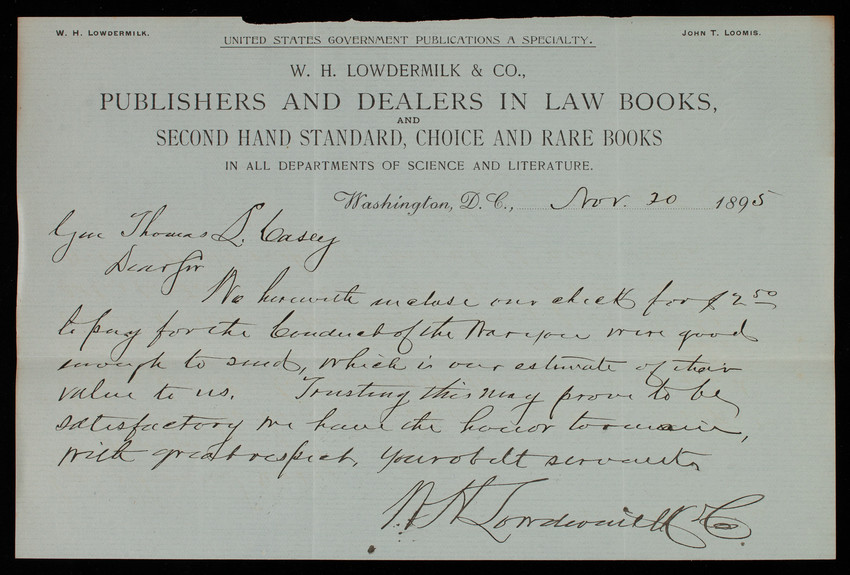 W. H. LOWDERMILK.
JOHN T. LOOMIS.
UNITED STATES GOVERNMENT PUBLICATIONS A SPECIALTY.
W. H. LOWDERMILK & CO.,
PUBLISHERS AND DEALERS IN LAW BOOKS,
AND
SECOND HAND STANDARD, CHOICE AND RARE BOOKS
IN ALL DEPARTMENTS OF SCIENCE AND LITERATURE.
Washington, D. C., Nov. 20 1895
Gen Thomas L. Casey
Dear Sir
We herewith inclose our check for $2 50
to pay for the Conduct of the War you were good
enough to send, which is our estimate of their
value to us. Trusting this may prove to be
satisfactory we have the honor to remain,
with great respect, your obdt servants
W H Lowdermilk & Co.